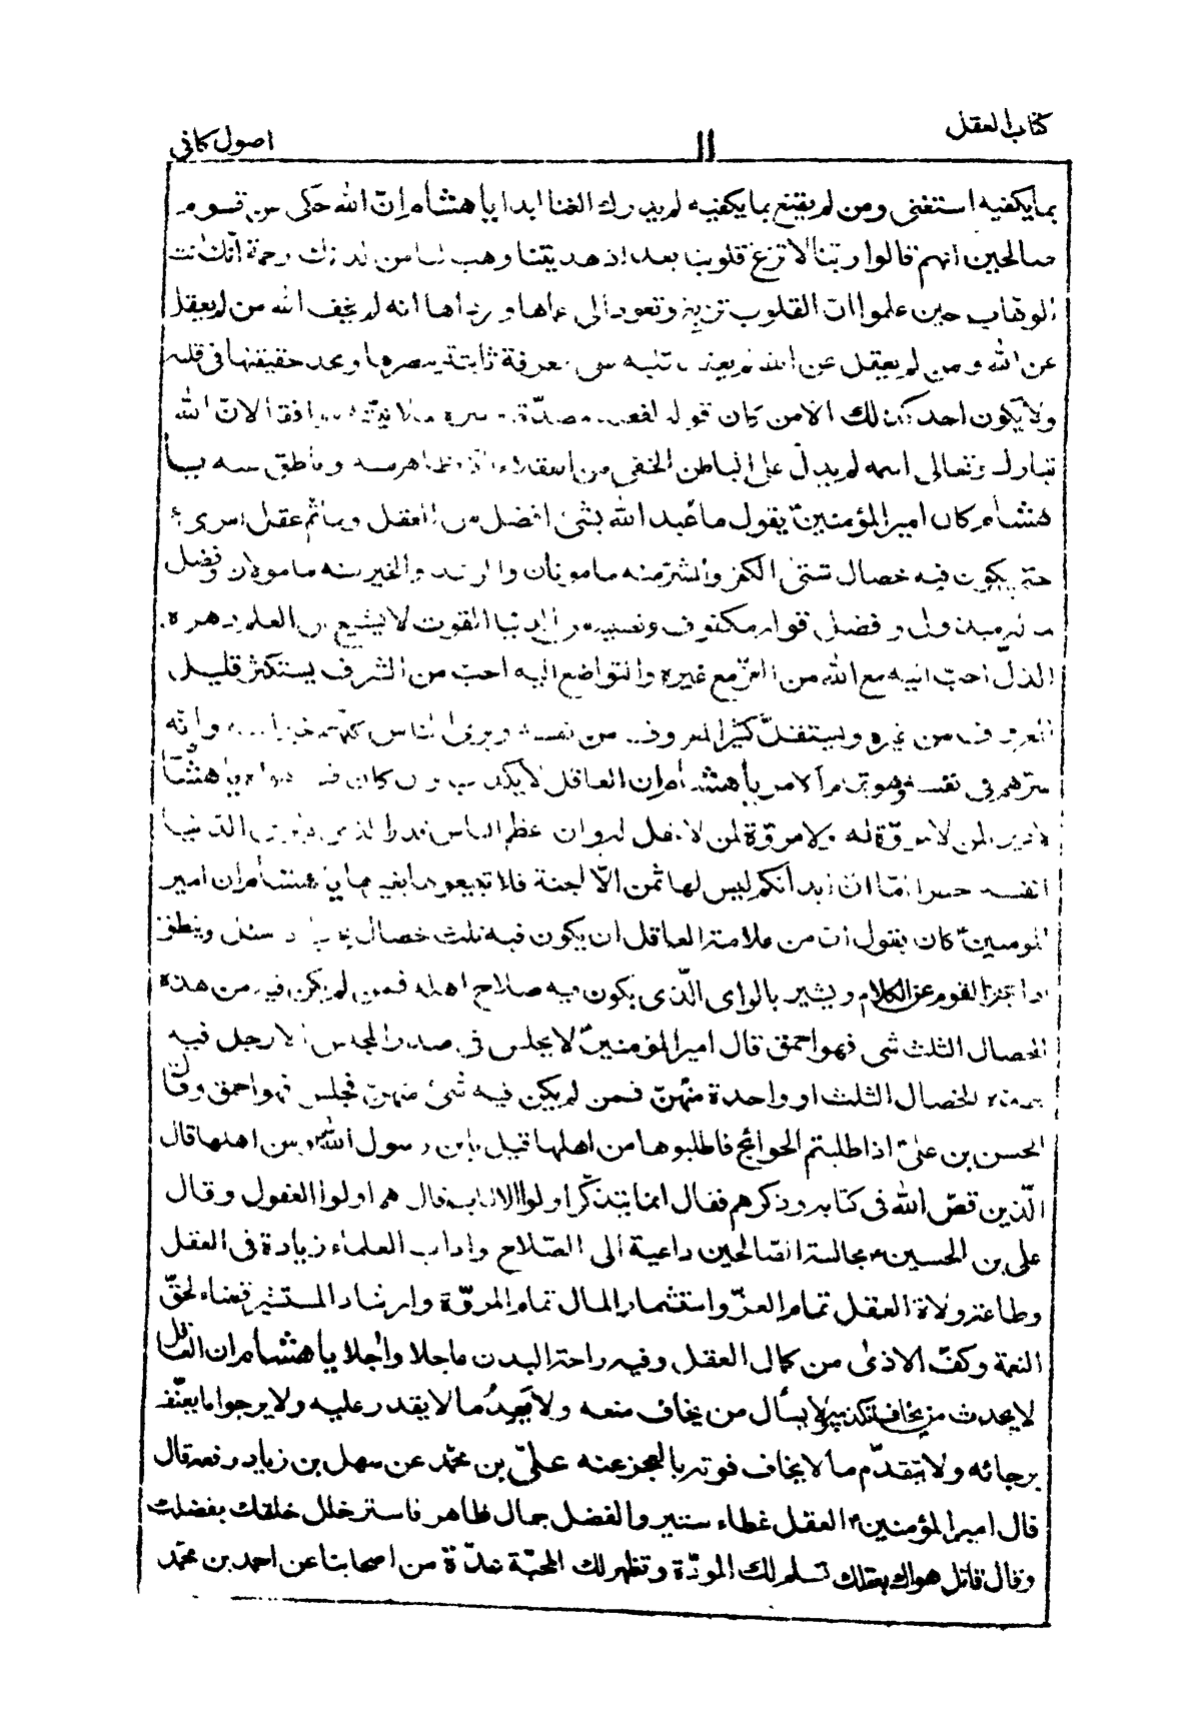 كتاب العقل
١١
اصول كافى
بما يكفيه استغنى ومن لم يقنع بما يكفيه لم يدرك الغنا ابدا يا هشام ان الله حكى عن قوم
صالحين انهم قالوا ربنا لا تزغ قلوبنا بعد اذ هديتنا وهب لنا من لدنك رحمة انك انت
الوهاب حين علموا ان القلوب تزيغ وتعود الى عماها ورداها انه لم يخف الله من لم يعقل
عن الله ومن لم يعقل عن الله لم يعقد قلبه على معرفة ثابتة يبصرها ويجد حقيقتها فى قلبه
ولا يكون احد كذلك الا من كان قوله لفعله مصدقا وسره لعلانيته موافقا لان الله
تبارك وتعالى اسمه لم يدل على الباطن الخفى من العقل الا بظاهر منه وناطق عنه يا
هشام كان امير المؤمنينؑ يقول ما عبد الله بشئ افضل من العقل وما تم عقل امرئ
حتى يكون فيه خصال شتى الكفر والشر منه مامونان والرشد والخير منه مامولان وفضل
ماله مبذول وفضل قوله مكفوف ونصيبه من الدنيا القوت لا يشبع من العلم دهره
الذل احب اليه مع الله من العز مع غيره والتواضع اليه احب من الشرف يستكثر قليل
المعروف من غيره ويستقل كثير المعروف من نفسه ويرى الناس كلهم خيرا منه وانه
شرهم فى نفسه وهو تمام الامر يا هشام ان العاقل لا يكذب وان كان فيه هواه يا هشام
لا دين لمن لا مروّة له ولا مروّة لمن لا عقل له وان اعظم الناس قدرا الذى لا يرى الدنيا
لنفسه خطرا اما ان ابدانكم ليس لها ثمن الا الجنة فلا تبيعوها بغيرها يا هشام ان امير
المومنينؑ كان يقول ان من علامة العاقل ان يكون فيه ثلث خصال يجيب اذا سئل وينطق
اذا عجز القوم عن الكلام ويشير بالراى الّذى يكون فيه صلاح اهله فمن لم يكن فيه من هذه
الخصال الثلث شى فهو احمق قال امير المؤمنينؑ لا يجلس فى صدر المجلس الا رجل فيه
هذه الخصال الثلث او واحدة منهنّ فمن لم يكن فيه شئ منهنّ فجلس فهو احمق وقال
الحسن بن علىؑ اذا طلبتم الحوائج فاطلبوها من اهلها قيل يا بن رسول الله ومن اهلها قال
الّذين قصّ الله فى كتابه وذكرهم فقال انما يتذكّر اولوا الالباب قال هم اولوا العقول وقال
على بن الحسينؑ مجالسة الصّالحين داعية الى الصّلاح واداب العلماء زيادة فى العقل
وطاعة ولاة العدل تمام العزّ واستثمار المال تمام المروّة وارشاد المستشير قضاء لحقّ
النعمة وكفّ الاذى من كمال العقل وفيه راحة البدن عاجلا واجلا يا هشام ان العاقل
لا يحدث من يخاف تكذيبه ولا يسأل من يخاف منعه ولا يَعِدُ ما لا يقدر عليه ولا يرجوا ما يعنّف
برجائه ولا يتقدّم ما لا يخاف فوته بالعجز عنه علىّ بن محمّد عن سهل بن زياد رفعه قال
قال امير المؤمنينؑ العقل غطاء ستير والفضل جمال ظاهر فاستر خلل خلقك بفضلك
وقال قاتل هواك بعقلك تسلم لك المودّة وتظهر لك المحبّة عدّة من اصحابنا عن احمد بن محمّد